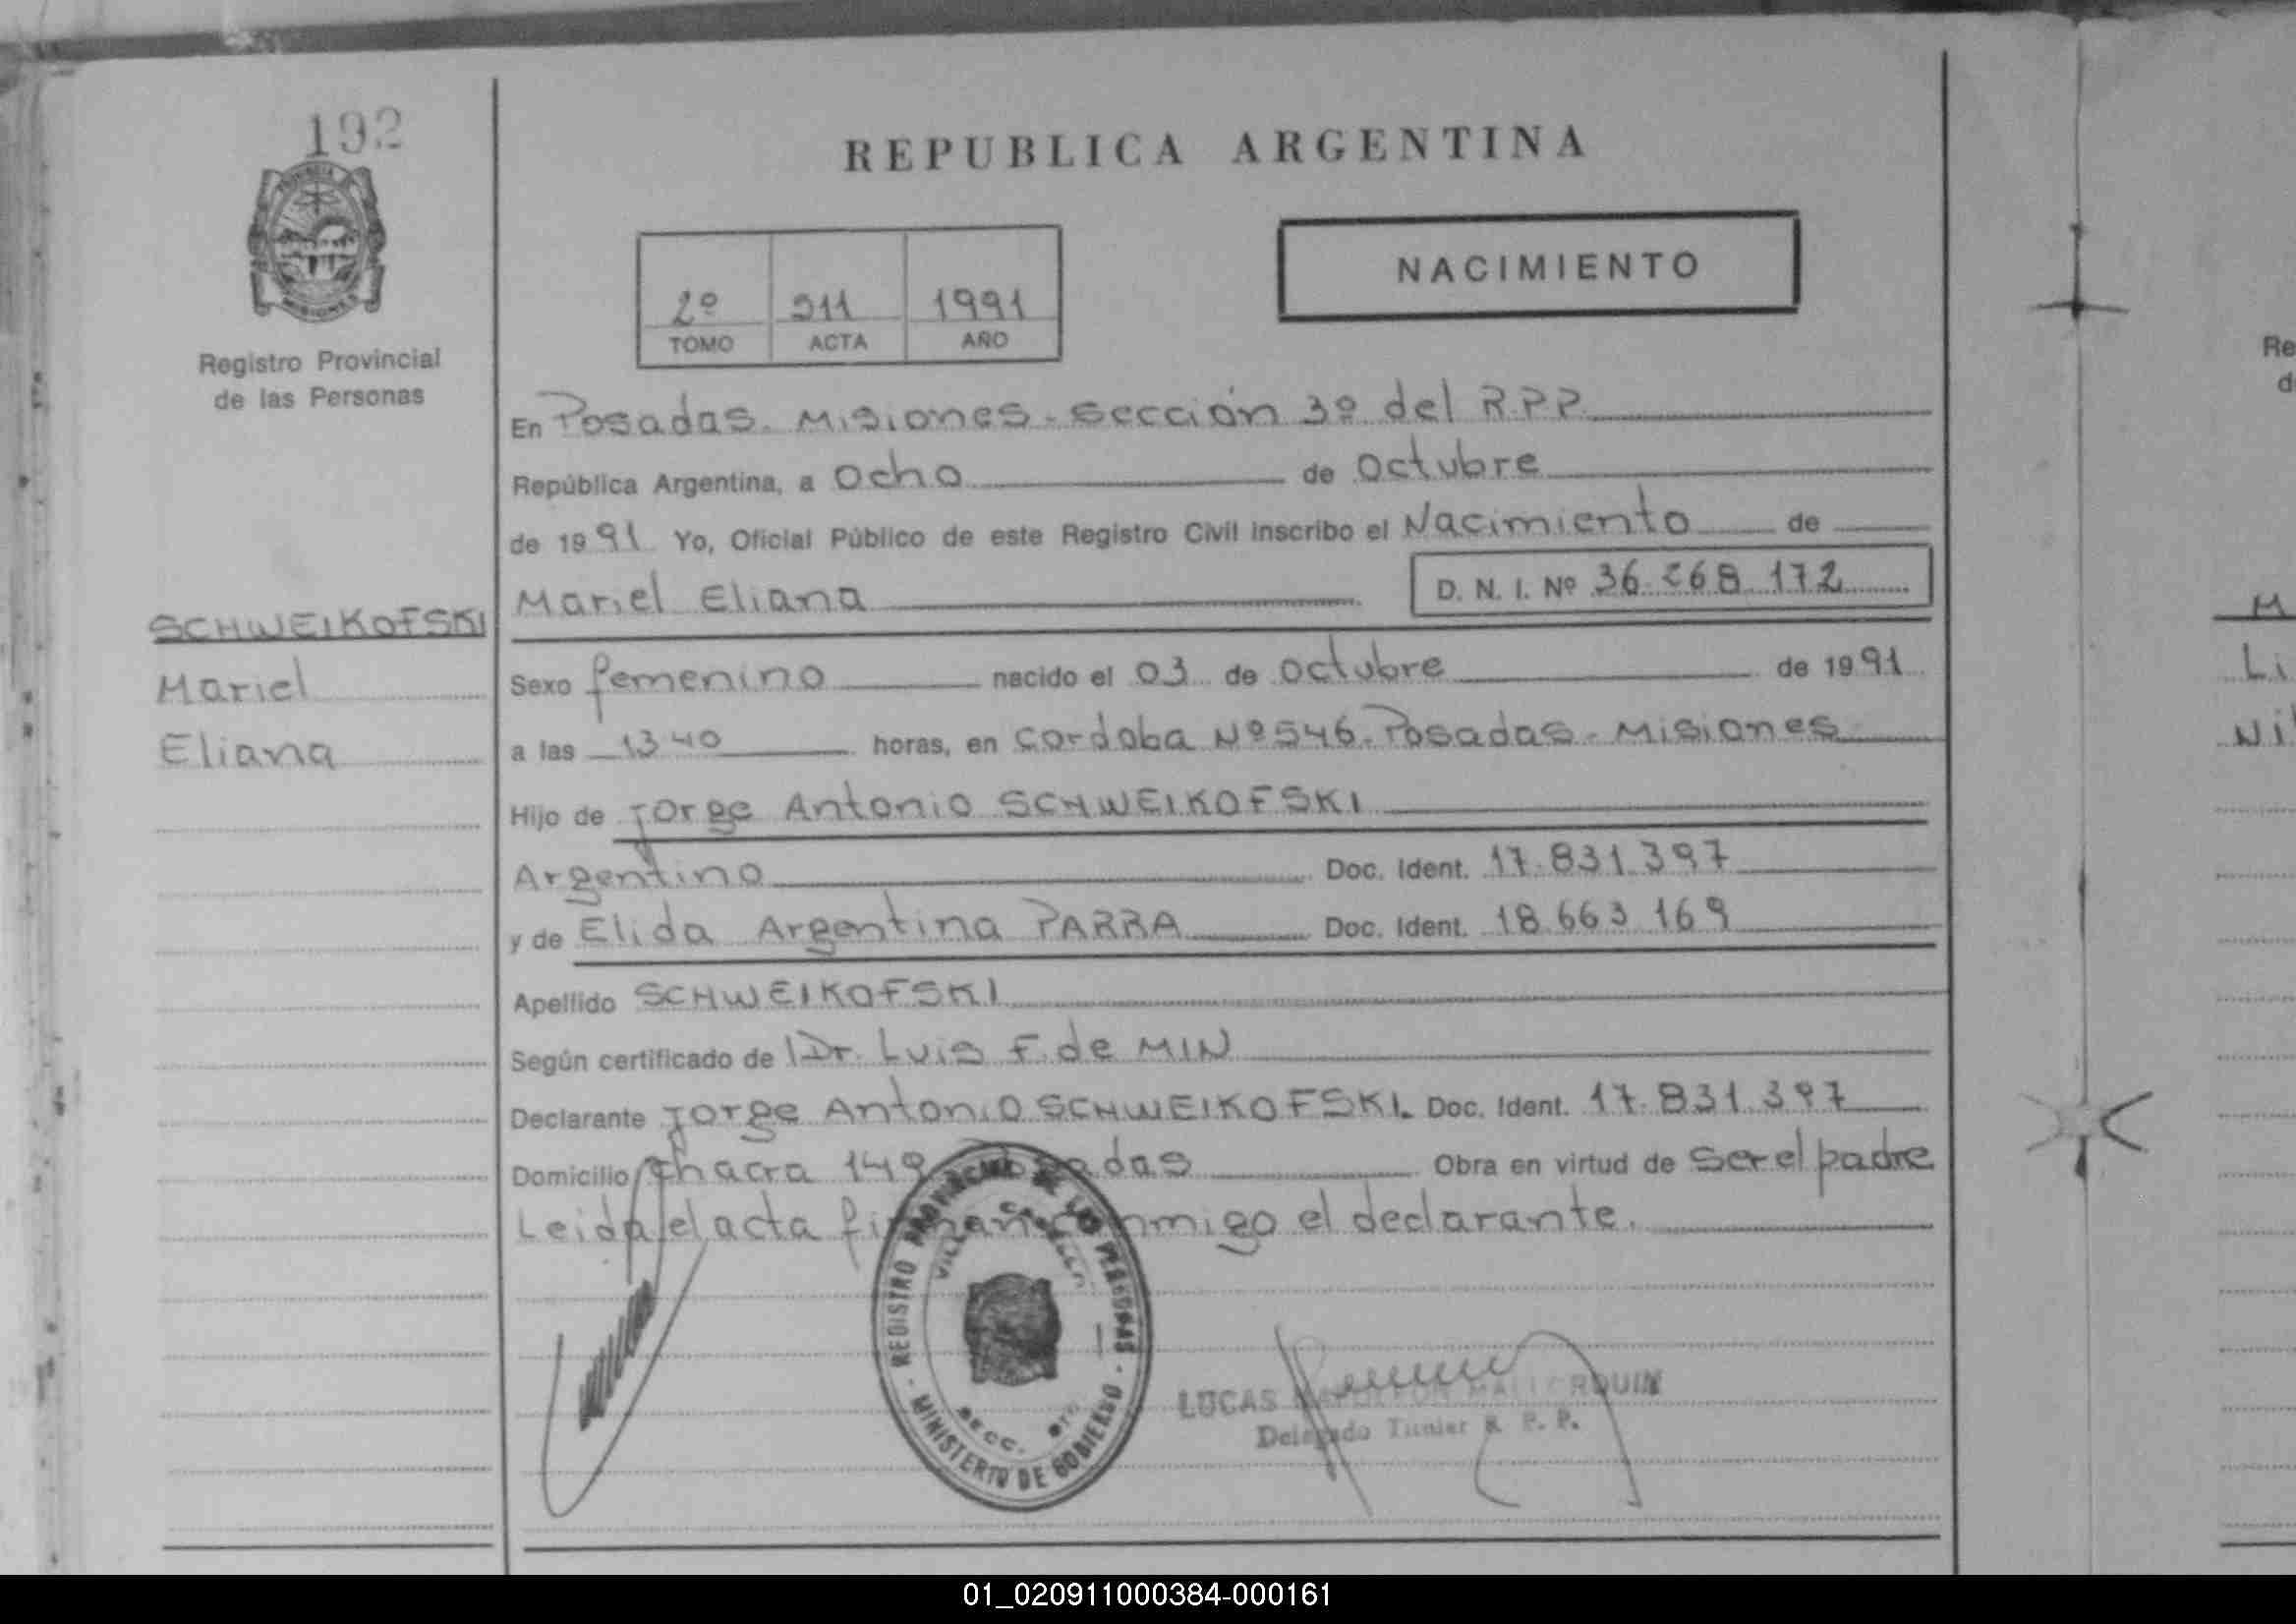 192
PROVINCIA
MISIONES
Registro Provincial
de las Personas
SCHWEIKOFSKI
Mariel
Eliana
REPUBLICA ARGENTINA
NACIMIENTO
2º 911 1991
TOMO ACTA AÑO
En Posadas. Misiones - Sección 3º del R.P.P.
República Argentina, a Ocho de Octubre
de 1991 Yo, Oficial Público de este Registro Civil inscribo el Nacimiento de
Mariel Eliana D. N. I. Nº 36.268.172
Sexo femenino nacido el 03 de Octubre de 1991
a las 13 40 horas, en Cordoba Nº 546. Posadas - Misiones
Hijo de Jorge Antonio SCHWEIKOFSKI
Argentino Doc. Ident. 17.831.397
y de Elida Argentina PARRA Doc. Ident. 18.663.169
Apellido SCHWEIKOFSKI
Según certificado de Dr. Luis F. de MIN
Declarante Jorge Antonio SCHWEIKOFSKI. Doc. Ident. 17.831.397
Domicilio Chacra 149 Posadas Obra en virtud de Ser el padre
Leida el acta firman conmigo el declarante.
REGISTRO PROVINCIAL DE LAS PERSONAS
- MINISTERIO DE GOBIERNO -
VILLA
SECC.
LUCAS
Delegado Titular R. P. P.
Re
d
M
Li
Ni
01_020911000384-000161